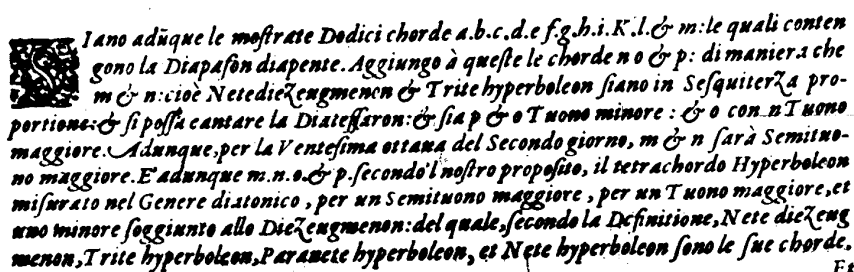 SIano adūque le moſtrate Dodici chorde a.b.c.d.e f.g.h.i.K.l.& m:le quali conten
gono la Diapaſon diapente. Aggiungo à queſte le chorde n o & p: di maniera che
m & n:cioè Netediezeugmenon & Trite hyperboleon ſiano in Seſquiterza pro-
portione:& ſi poſſa cantare la Diateſſaron:& ſia p & o Tuono minore : & o con n Tuono
maggiore. Adunque per la Venteſima ottaua del Secondo giorno, m & n ſarà Semituo-
no maggiore. E' adunque m.n.o.& p.ſecondo'l noſtro propoſito, il tetrachordo Hyperboleon
miſurato nel Genere diatonico, per un Semituono maggiore, per un Tuono maggiore, et
uno minore ſoggiunto allo Diezeugmenon: del quale, ſecondo la Definitione, Nete diezeug
menon, Trite hyperboleon, Paranete hyperboleon, et Nete hyperboleon ſono le ſue chorde.
Et